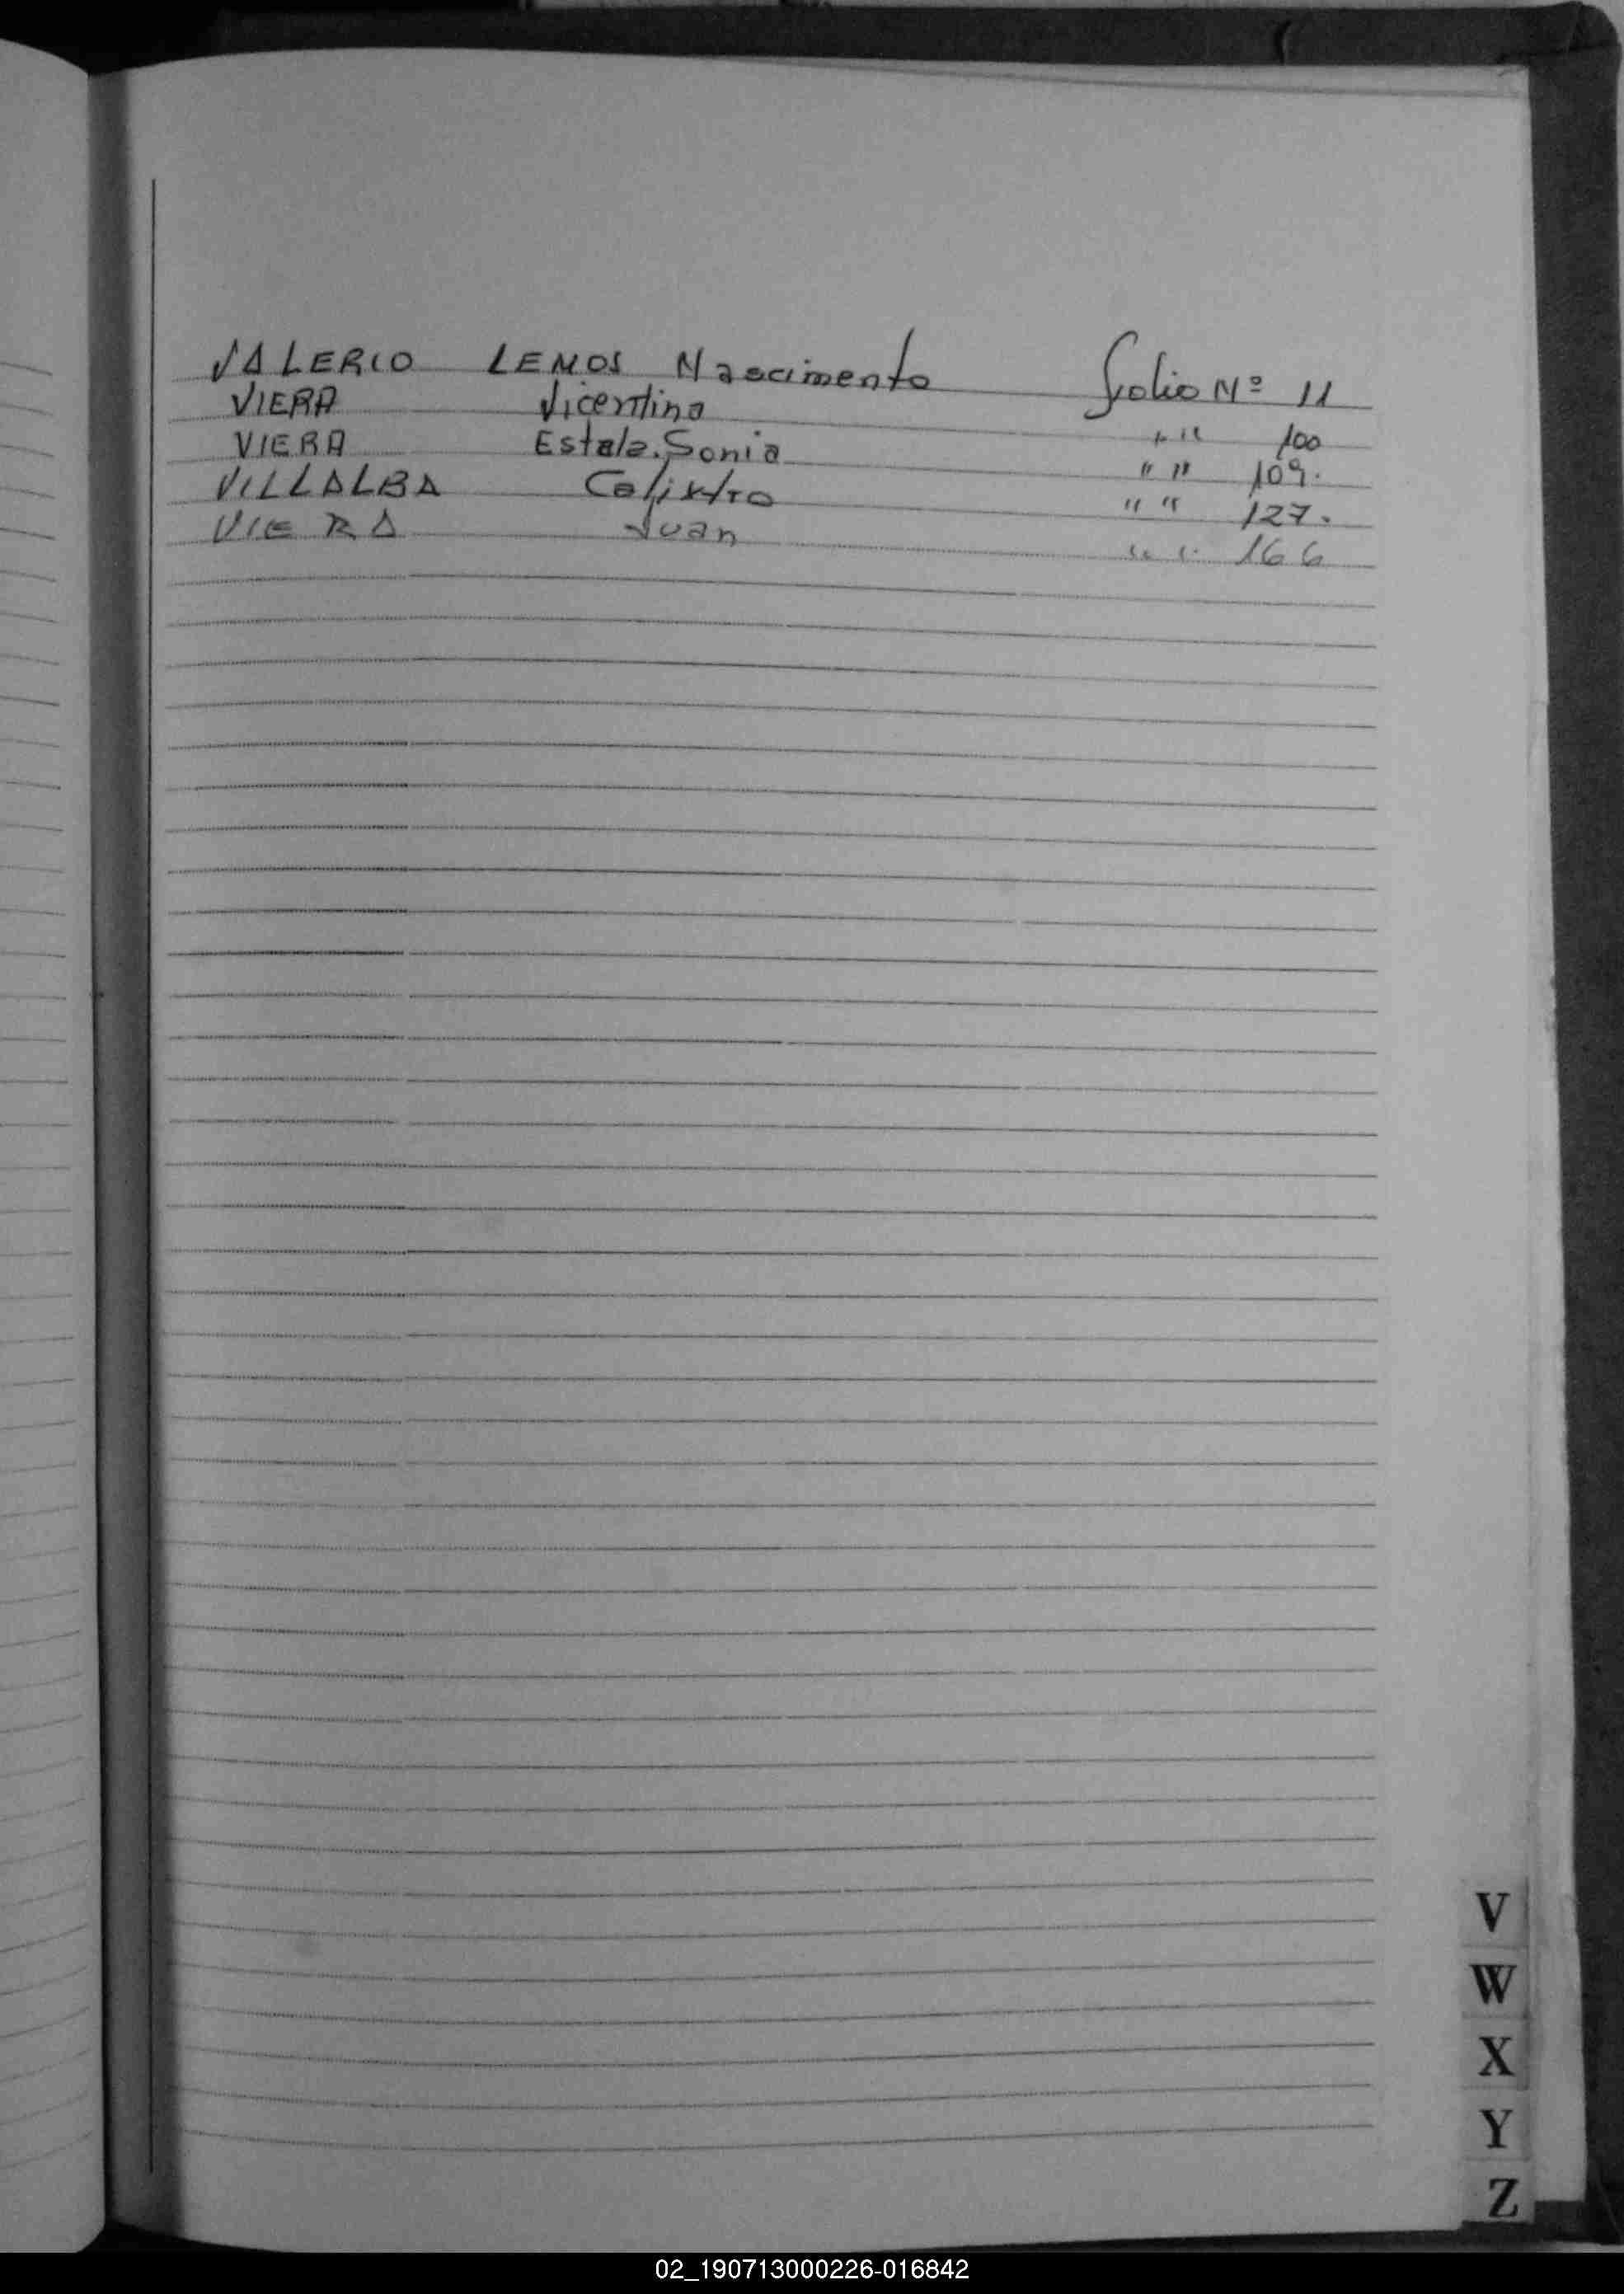 VALERIO LEMOS Nascimento folio Nº 11
VIERA Vicentina " " 100
VIERA Estela. Sonia " " 109.
VILLALBA Calixtro " " 127.
VIERA Juan " " 166
V
W
X
Y
Z
02_190713000226-016842